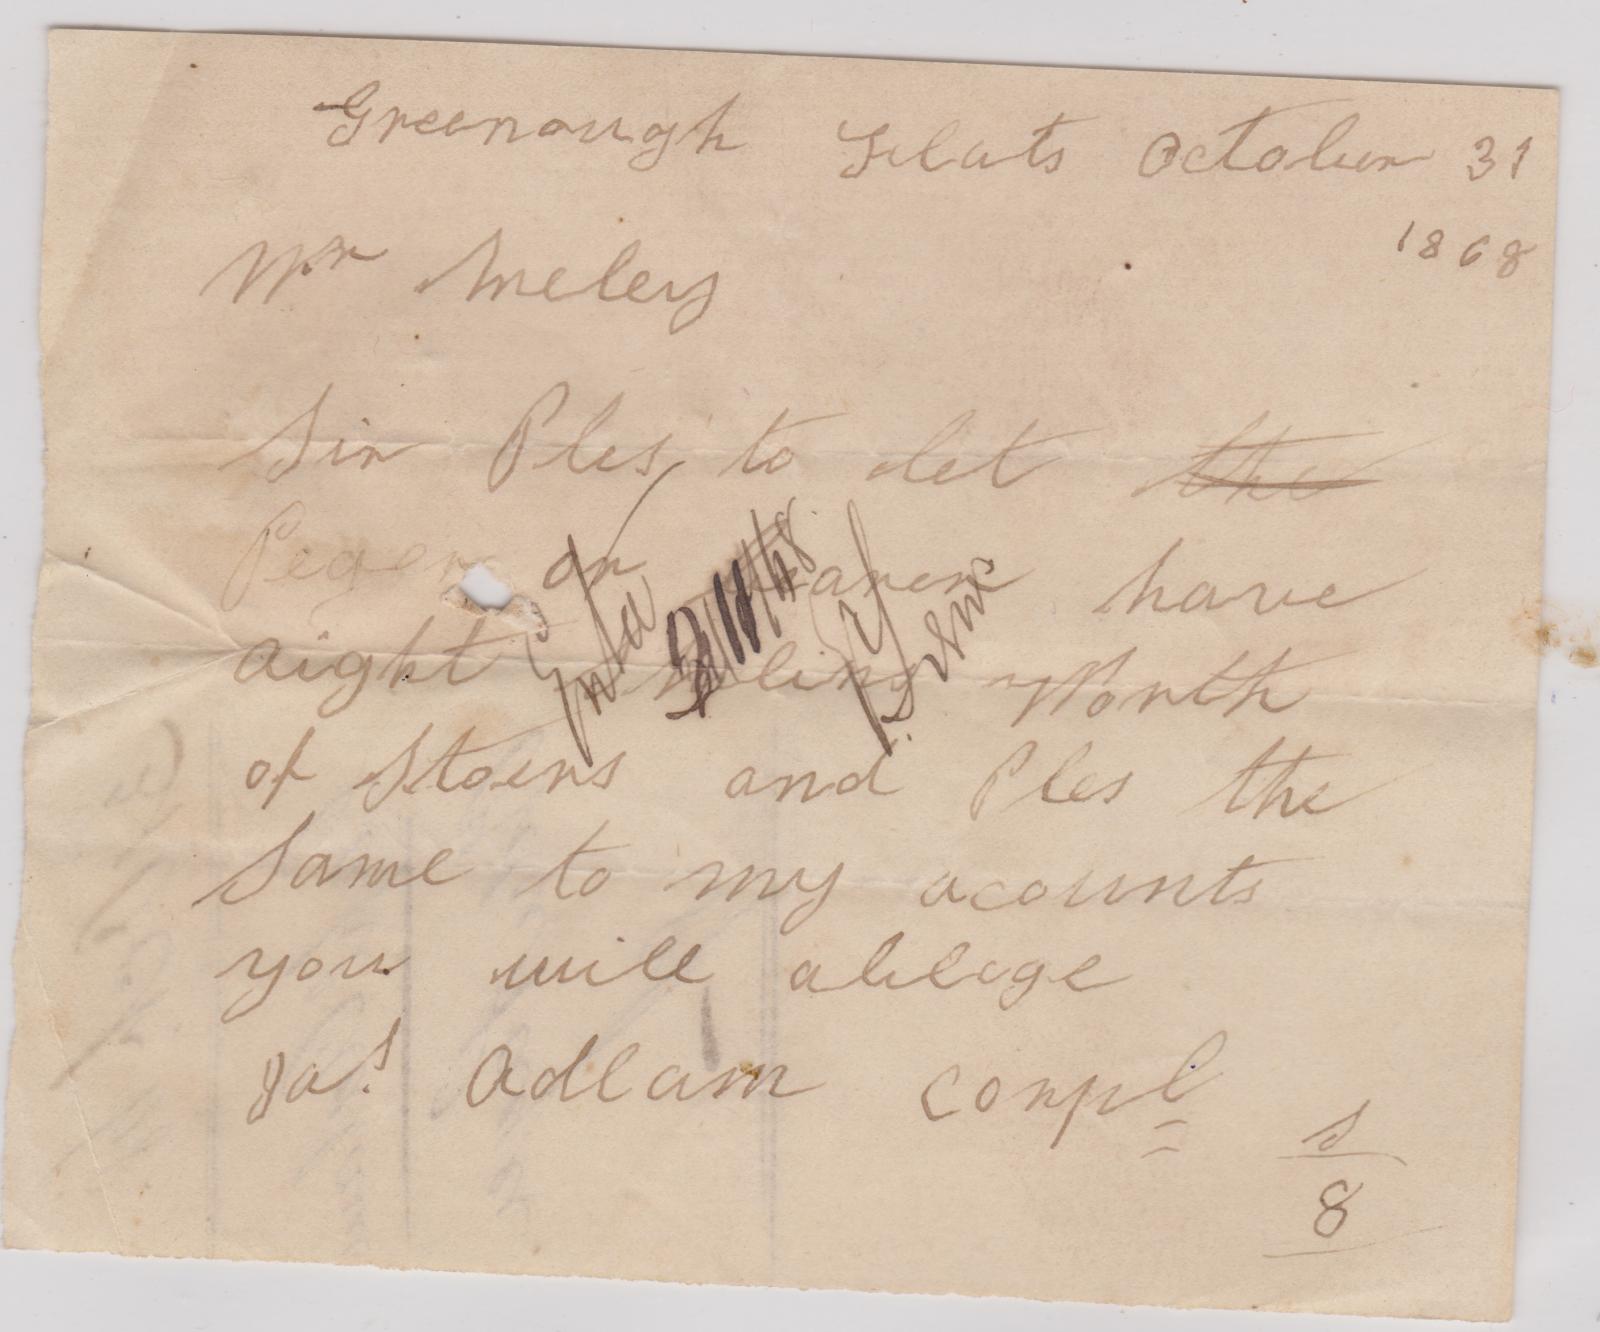 Greenough Flats October 31
1868
Mr Meley
Sir Ples to let the
or have
aight Worth
of Stoers and Ples the
Same to my acounts
you will ablege
Jas. Adlam corpl
s
8